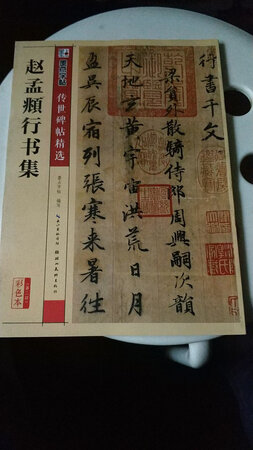 墨点字帖
传世碑帖精选
赵孟頫行书集
墨点字帖 编写
湖北美术出版社
彩色本
行書千文
梁貟外散騎侍郎周興嗣次韻
天地玄黃宇宙洪荒日月
盈昃辰宿列張寒来暑往